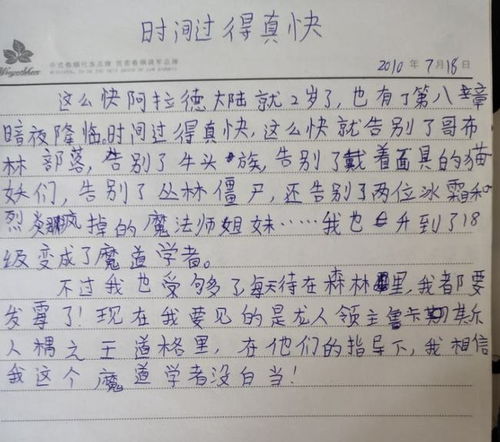 时间过得真快
2010 年 7月18日
这么快阿拉德大陆就2岁了,也有了第八章
暗夜降临。时间过得真快,这么快就告别了哥布
林部落,告别了牛头族,告别了戴着面具的猫
妖们,告别了丛林僵尸,还告别了两位冰霜和
烈焱疯掉的魔法师姐妹……我也升到了18
级变成了魔道学者。
不过我也受够了每天待在森林里,我都要
发霉了!现在我要见的是龙人领主鲁卡斯其乐
人偶之王道格里,在他们的指导下,我相信
我这个魔道学者没白当!